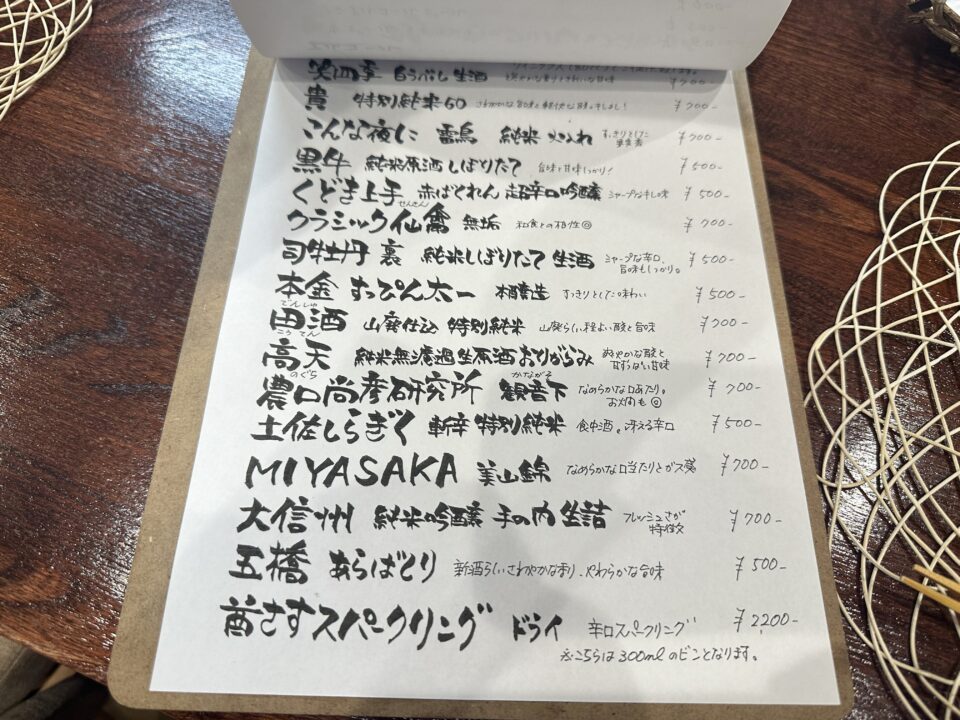 笑四季 白ラベル 生酒 爽やかな香りときれいな甘味 ¥700-
貴 特別純米60 さわやかな旨味と軽快な酸。キレよし! ¥700-
こんな夜に 雷鳥 純米 火入れ すっきりとした果実香 ¥700-
黒牛 純米原酒しぼりたて 旨味と甘味しっかり! ¥500-
くどき上手 赤ばくれん 超辛口吟醸 シャープなキレ味 ¥500-
せんきん
クラシック仙禽 無垢 和食との相性◎ ¥700-
司牡丹 裏 純米しぼりたて 生酒 シャープな辛口、旨味もしっかり。 ¥500-
本金 すっぴん太一 本醸造 すっきりとした味わい ¥500-
でんしゅ
田酒 山廃仕込 特別純米 山廃らしい程よい酸と旨味 ¥700-
こうてん
高天 純米無濾過生原酒おりがらみ 爽やかな酸と甘ずっぱい甘味 ¥700-
のぐち かながそ
農口尚彦研究所 観音下 なめらかな口あたり。お燗も◎ ¥700-
土佐しらぎく 斬辛 特別純米 食中酒。冴える辛口 ¥500-
MIYASAKA 美山錦 なめらかな口当たりとガス感 ¥700-
大信州 純米吟醸 手の内 生詰 フレッシュさが特徴 ¥700-
五橋 あらばしり 新酒らしいさわやかな香り、やわらかな旨味 ¥500-
酋さすスパークリング ドライ 辛口スパークリング ¥2,200-
※こちらは300mlのビンとなります。